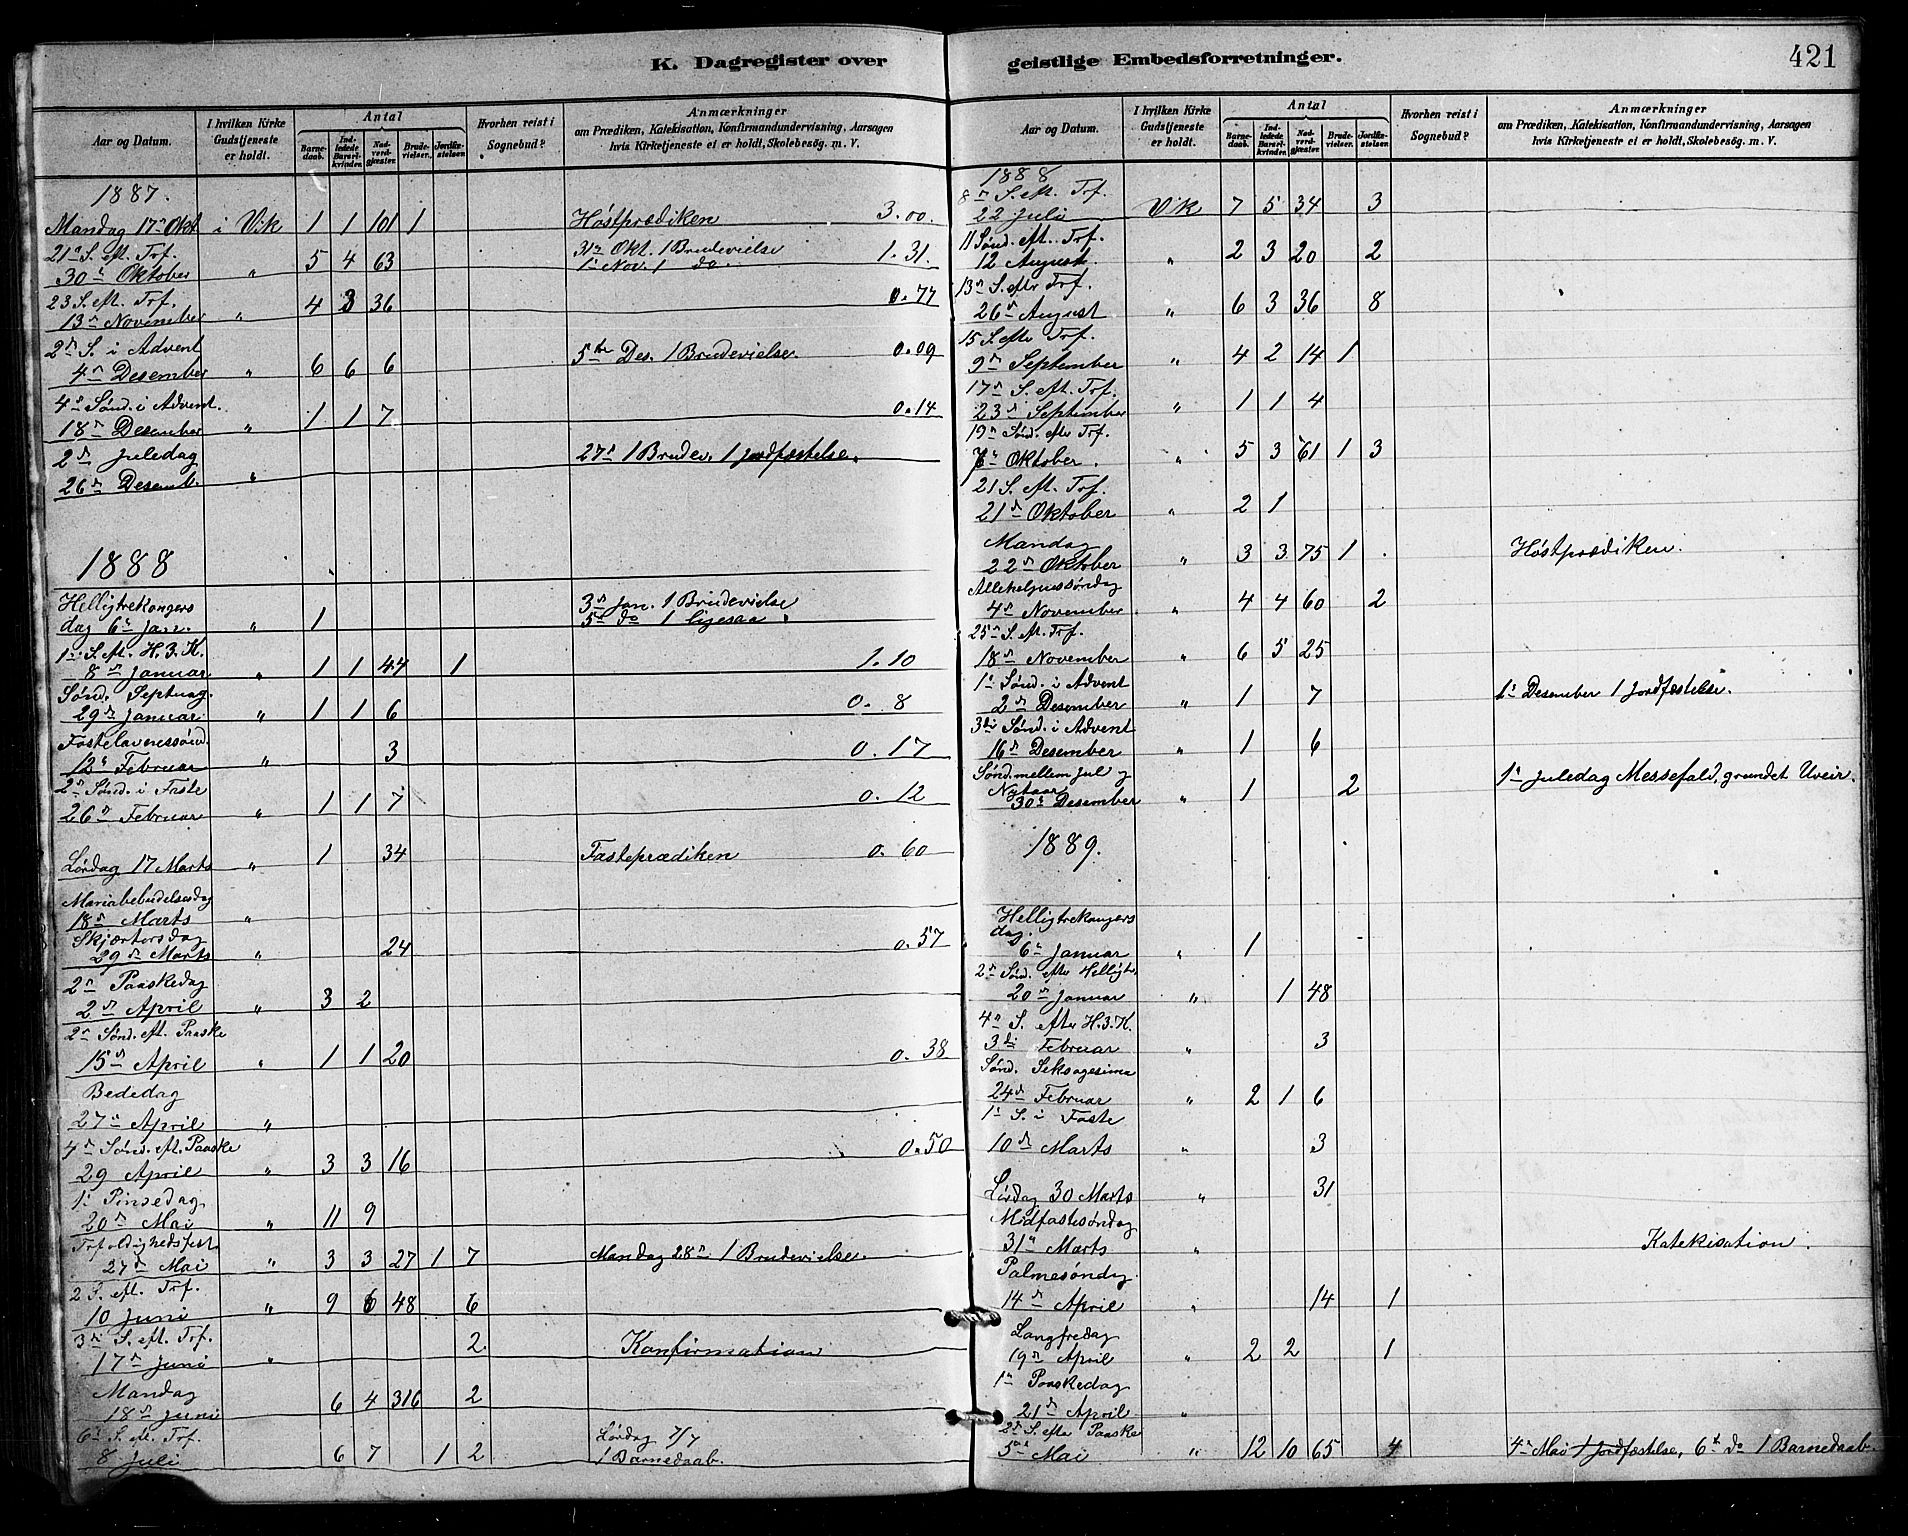 K. Dagregister over
Aar og Datum. I hvilken Kirke Gudstjeneste er holdt. Antal Barnedaab. Indledede Barselkvinder. Nadverdgjæster. Brudevielser. Jordfæstelser. Hvorhen reist i Sognebud? Anmærkninger om Prædiken, Katekisation, Konfirmandundervisning, Aarsagen hvis Kirketjeneste ei er holdt, Skolebesøg. m. V.
1887.
Mandag 17n Okt i Vik 1 1 101 1 Høstprædiken 3.00.
21n S. eft. Trf. 31n Okt. 1 Brudevielse
30n Oktober " 5 4 63 1n Nov. 1 do. 1.31.
23 S. eft. Trf.
13n November " 4 3 36 0.77
2n S. i Advent
4n Desember " 6 6 6 5te Des. 1 Brudevielse 0.09
4n Sønd. i Advent.
18n Desember " 1 1 7 0.14
2n Juledag
26n Desemb. " 27n 1 Brudev. 1 Jordfæstelse.
1888
Helligtrekongers 3n Jan. 1 Brudevielse
dag 6n Jan. " 1 5n do 1 ligesaa.
1n S. eft. H.3.K.
8n Januar " 1 1 44 1 1.10
Sønd. Septuag.
29n Januar " 1 1 6 0.8
Fastelavenssønd.
12n Februar " 3 0.17
2n Sønd. i Faste
26n Februar " 1 1 7 0.12
Lørdag 17 Marts " 1 34 Fasteprædiken 0.60
Mariabebudelsesdag
18n Marts "
Skjærtorsdag
29n Marts " 24 0.57
2n Paaskedag
2n April " 3 2
2n Sønd. eft. Paaske
15n April " 1 1 20 0.38
Bededag
27n April "
4n Sønd. eft. Paaske
29 April " 3 3 16 0.50
1n Pinsedag
20n Mai " 11 9
Trfoldighedsfest
27n Mai " 3 3 27 1 7 Mandag 28n 1 Brudevielse.
2 S. eft. Trf.
10 Juni " 9 6 48 6
3n S. eft. Trf.
17n Juni " 2 Konfirmation
Mandag
18n Juni 6 4 316 2
6n S. eft. Trf. Lørdag 7/7
8 Juli 6 7 1 2 1 Barnedaab.
geistlige Embedsforretninger.
421
Aar og Datum. I hvilken Kirke Gudstjeneste er holdt. Antal Barnedaab. Indledede Barselkvinder. Nadverdgjæster. Brudevielser. Jordfæstelser. Hvorhen reist i Sognebud? Anmærkninger om Prædiken, Katekisation, Konfirmandundervisning, Aarsagen hvis Kirketjeneste ei er holdt, Skolebesøg. m. V.
1888
8n S. eft. Trf.
22 Juli Vik 7 5 34 3
11 Sønd. eft. Trf.
12 August " 2 3 20 2
13n S. eftr Trf.
26n August " 6 3 36 8
15 S. efte Trf.
9n September " 4 2 14 1
17n S. eft. Trf.
23n September " 1 1 4
19n Sønd. efte Trf.
7n Oktober. " 5 3 61 1 3
21 S. eft. Trf.
21n Oktober " 2 1
Mandag
22n Oktober " 3 3 75 1 Høstprædiken.
Allehelgenssøndag
4n November " 4 4 60 2
25n S. eft. Trf.
18n November " 6 5 25
1n Sønd. i Advent
2n Desember " 1 7 1n Desember 1 Jordfæstelse.
3di Sønd. i Advent
16n Desember " 1 6
Sønd. mellem Jul og 1n Juledag Messefald, grundet Uveir.
Nytaar
30n Desember " 1 2
1889.
Helligtrekongers
dag.
6n Januar " 1
2n Sønd. efte Helligtr.
20n Januar " 1 48
4n S. efte H.3.K.
3di Februar " 3
Sønd. Seksagesima
24n Februar " 2 1 6
1n S. i Faste
10n Marts " 3
Lørdag 30 Marts " 31
Midfastesøndag
31n Marts " Katekisation.
Palmesøndag.
14n April " 14 1
Langfredag
19n April " 2 2 1
1n Paaskedag
21n April "
2n S. efte Paaske
5n Mai " 12 10 65 4 4n Mai 1 Jordfæstelse, 6n do 1 Barnedaab.